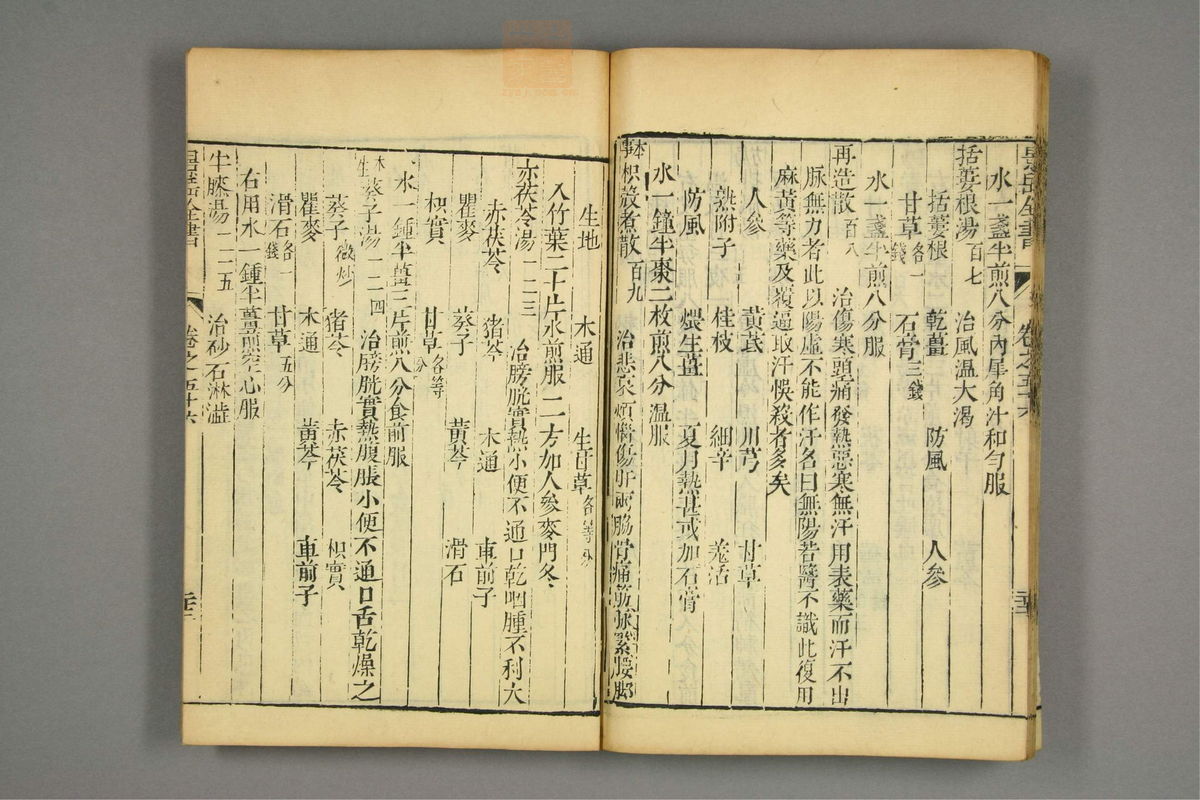 水一盞半煎八分內犀角汁和勻服
括蔞根湯百七 治風温大渴
括蔞根 乾薑 防風 人參
甘草各一錢 石膏三錢
水一盞半煎八分服
再造散百八 治傷寒頭痛發熱惡寒無汗用表藥而汗不出
脉無力者此以陽虛不能作汗名曰無陽若醫不識此復用
麻黃等藥及覆逼取汗悞殺者多矣
人參 黃芪 川芎 甘草
熟附子 桂枝 細辛 羗活
防風 煨生薑 夏月熱甚或加石膏
水一鐘半棗二枚煎八分温服
本事枳殼煮散百九 治悲哀煩惱傷肝兩脇骨痛筋脉緊腰脚
生地 木通 生甘草各等分
入竹葉二十片水煎服 二方加人參麥門冬
赤茯苓湯一二三 治膀胱實熱小便不通口乾咽腫不利大
赤茯苓 猪苓 木通 車前子
瞿麥 葵子 黃芩 滑石
枳實 甘草各等分
水一鐘半薑三片煎八分食前服
葵子湯一二四 治膀胱實熱腹脹小便不通口舌乾燥之
葵子微炒 猪苓 赤茯苓 枳實
瞿麥 木通 黃芩 車前子
滑石各一錢 甘草五分
右用水一鍾半薑煎空心服
牛膝湯一二五 治砂石淋澁
卷之五十六